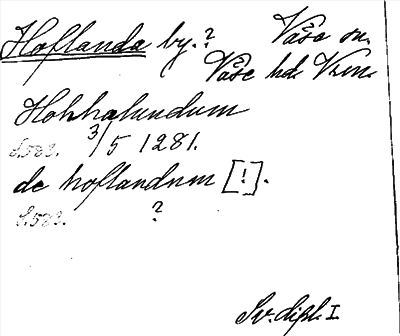 Hoflanda by.? Våse sn.
Våse hd. Vrm.
Hohhalundum
S.583. 3/5 1281.
de hoflandum [!].
S.583. ?
Sv. dipl. I